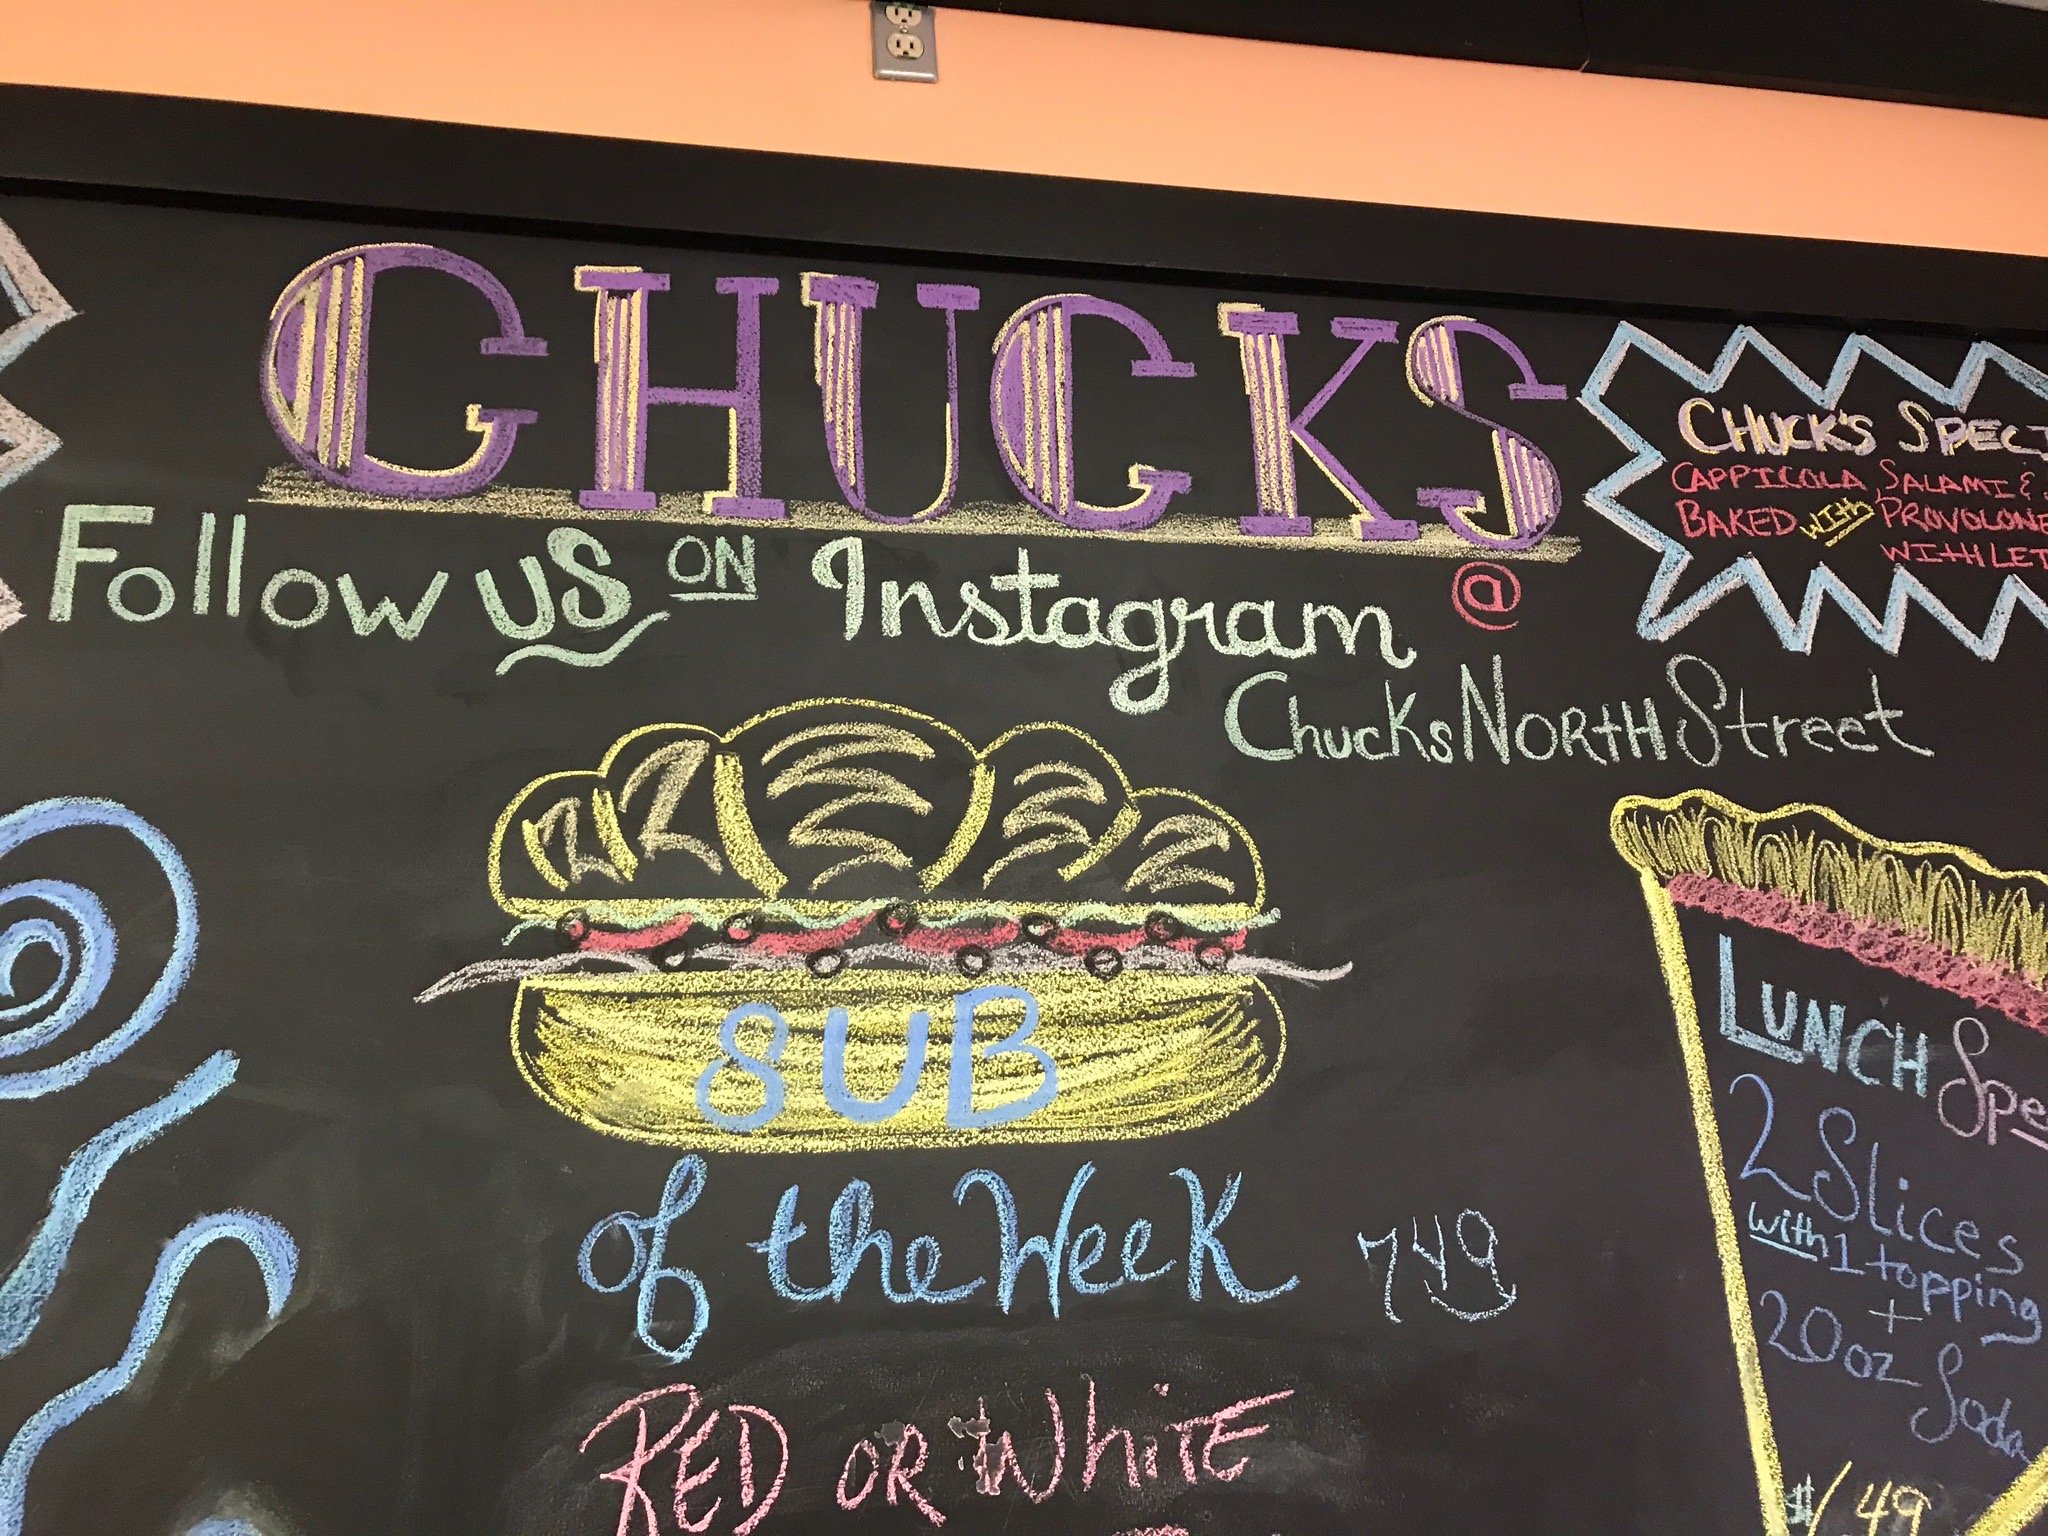 CHUCKS
Follow us ON Instagram @
ChucksNORtHStreet
CHUCK'S
CAPPICOLA, SALAMI &
BAKED with PROVOLONE
WITH
SUB
of the Week 749
RED OR White
LUNCH
2 Slices
with 1 topping
+
20oz Soda